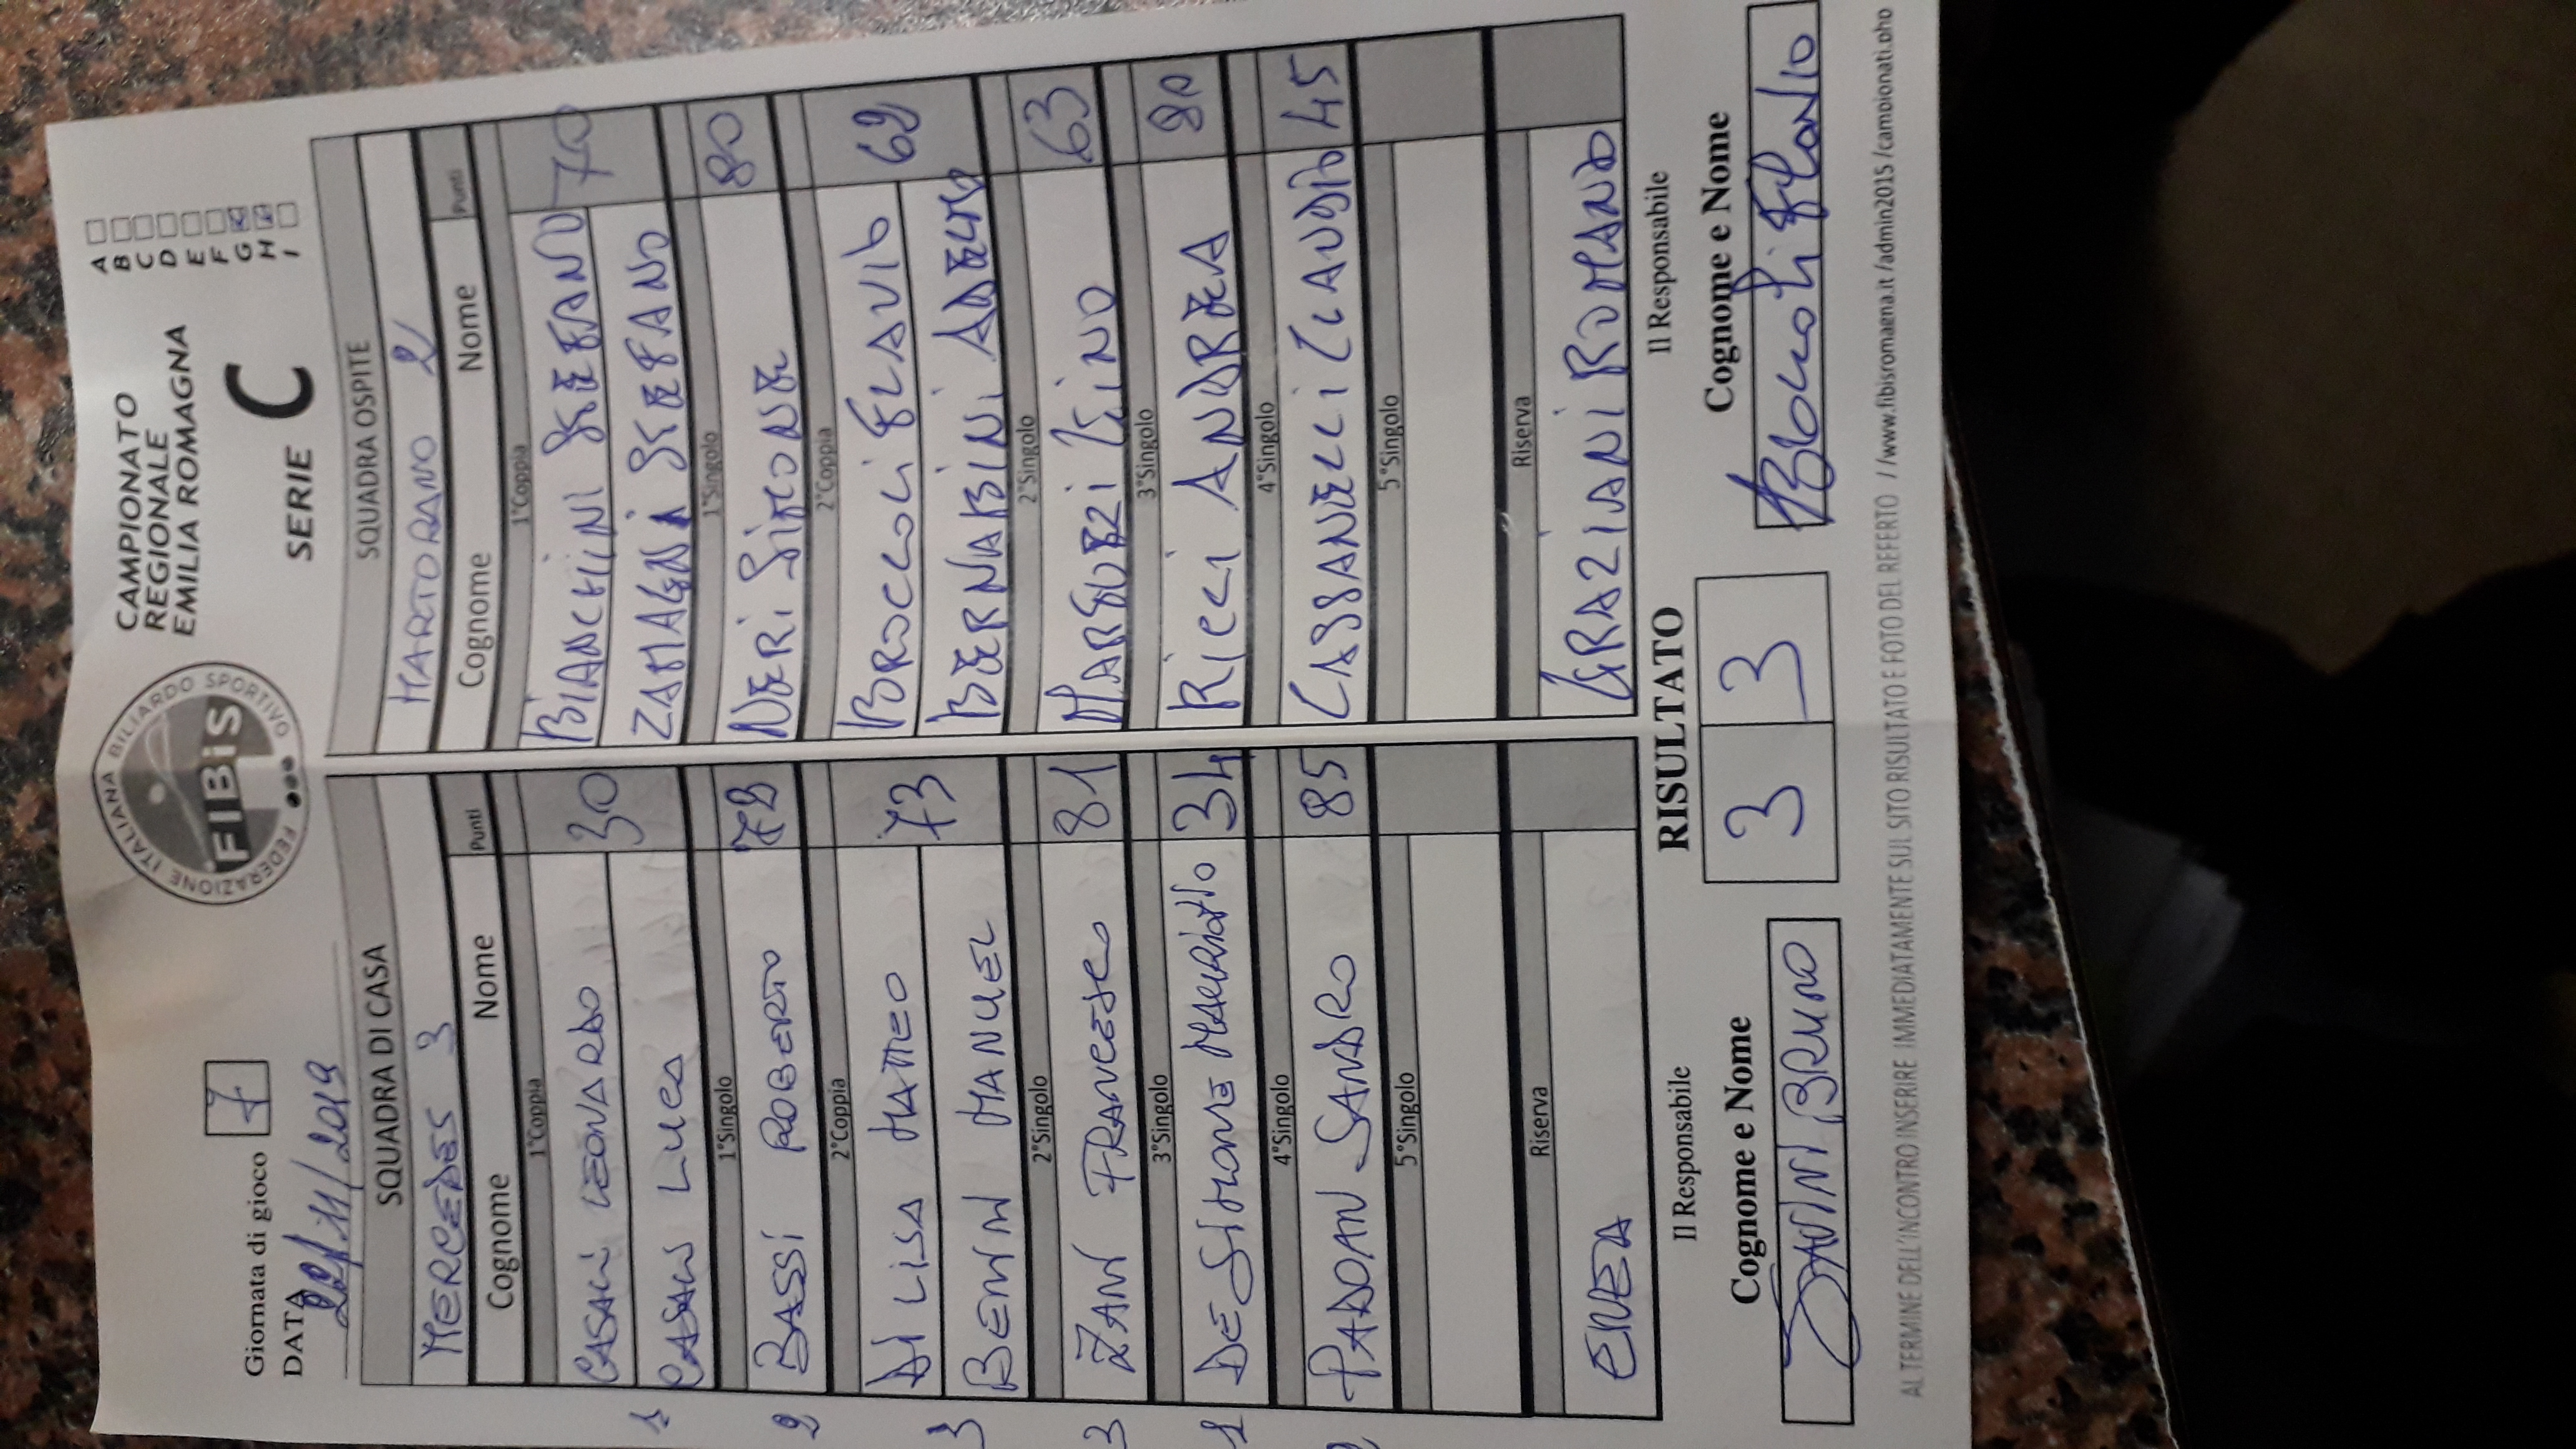 Giornata di gioco 7
DATA 22/11/2019
FEDERAZIONE ITALIANA BILIARDO SPORTIVO
FIBiS
CAMPIONATO
REGIONALE
EMILIA ROMAGNA
SERIE C
A
B
C
D
E
F
G
H
I
SQUADRA DI CASA
MERCEDES 3
Cognome Nome Punti
1°Coppia
CASALI LEONARDO 30
1 CASALI LUCA
1°Singolo
2 BASSI ROBERTO 78
2°Coppia
DI LISA MATTEO 73
3 BENINI MANUEL
2°Singolo
3 ZANI FRANCESCO 81
3°Singolo
1 DE SIMONE MAURIZIO 34
4°Singolo
2 PADOAN SANDRO 85
5°Singolo
Riserva
ENEA
SQUADRA OSPITE
MARTORANO 2
Cognome Nome Punti
1°Coppia
BIANCHINI STEFANO 70
ZAMAGNI STEFANO
1°Singolo
NERI SIMONE 80
2°Coppia
BROCCOLI FLAVIO 62
BERNABINI ADELMO
2°Singolo
GINO 63
3°Singolo
RICCI ANDREA 80
4°Singolo
CASSANELLI CLAUDIO 45
5°Singolo
Riserva
GRAZIANI ROMANO
Il Responsabile
Cognome e Nome
BRUNO
RISULTATO
3 3
Il Responsabile
Cognome e Nome
Broccoli Flavio
AL TERMINE DELL'INCONTRO INSERIRE IMMEDIATAMENTE SUL SITO RISULTATO E FOTO DEL REFERTO //www.fibisromagna.it /admin2015 /campionati.php